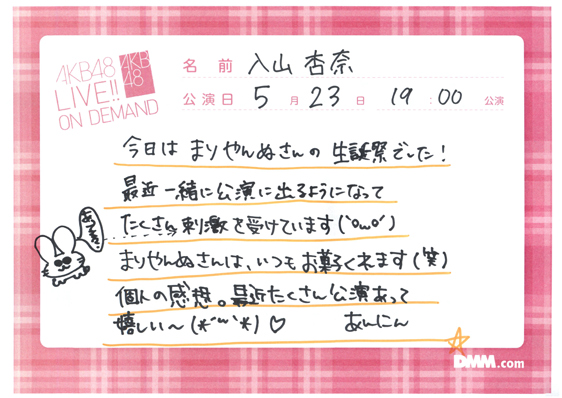 AKB48
LIVE!!
ON DEMAND
AKB
48
名 前 入山 杏奈
公演日 5 月 23 日 19 : 00 公演
今日は まりやんぬさんの 生誕祭でした！
最近 一緒に公演に出るようになって
たくさん刺激を受けています(`・ω・´)
まりやんぬさんは、いつもお菓子くれます(笑)
個人の感想。最近たくさん公演あって
嬉しい〜(*´ω`*)♡ あんにん
DMM.com